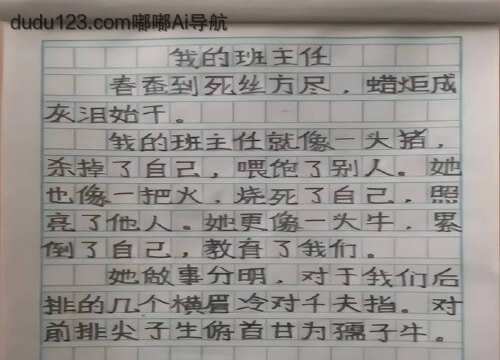 dudu123.com嘟嘟Ai导航
我的班主任
春蚕到死丝方尽，蜡炬成
灰泪始干。
我的班主任就像一头猪，
杀掉了自己，喂饱了别人。她
也像一把火，烧死了自己，照
亮了他人。她更像一头牛，累
倒了自己，教育了我们。
她做事分明，对于我们后
排的几个横眉冷对千夫指。对
前排尖子生俯首甘为孺子牛。